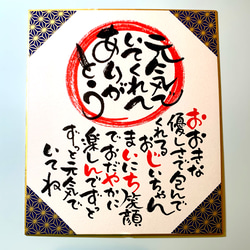 元気で
いてくれて
ありが
とう
おおきな
優しさで包んで
くれるおじいちゃん
まいにち笑顔
でおだやかに
楽しんでずっと
ずっと元気で
いてね